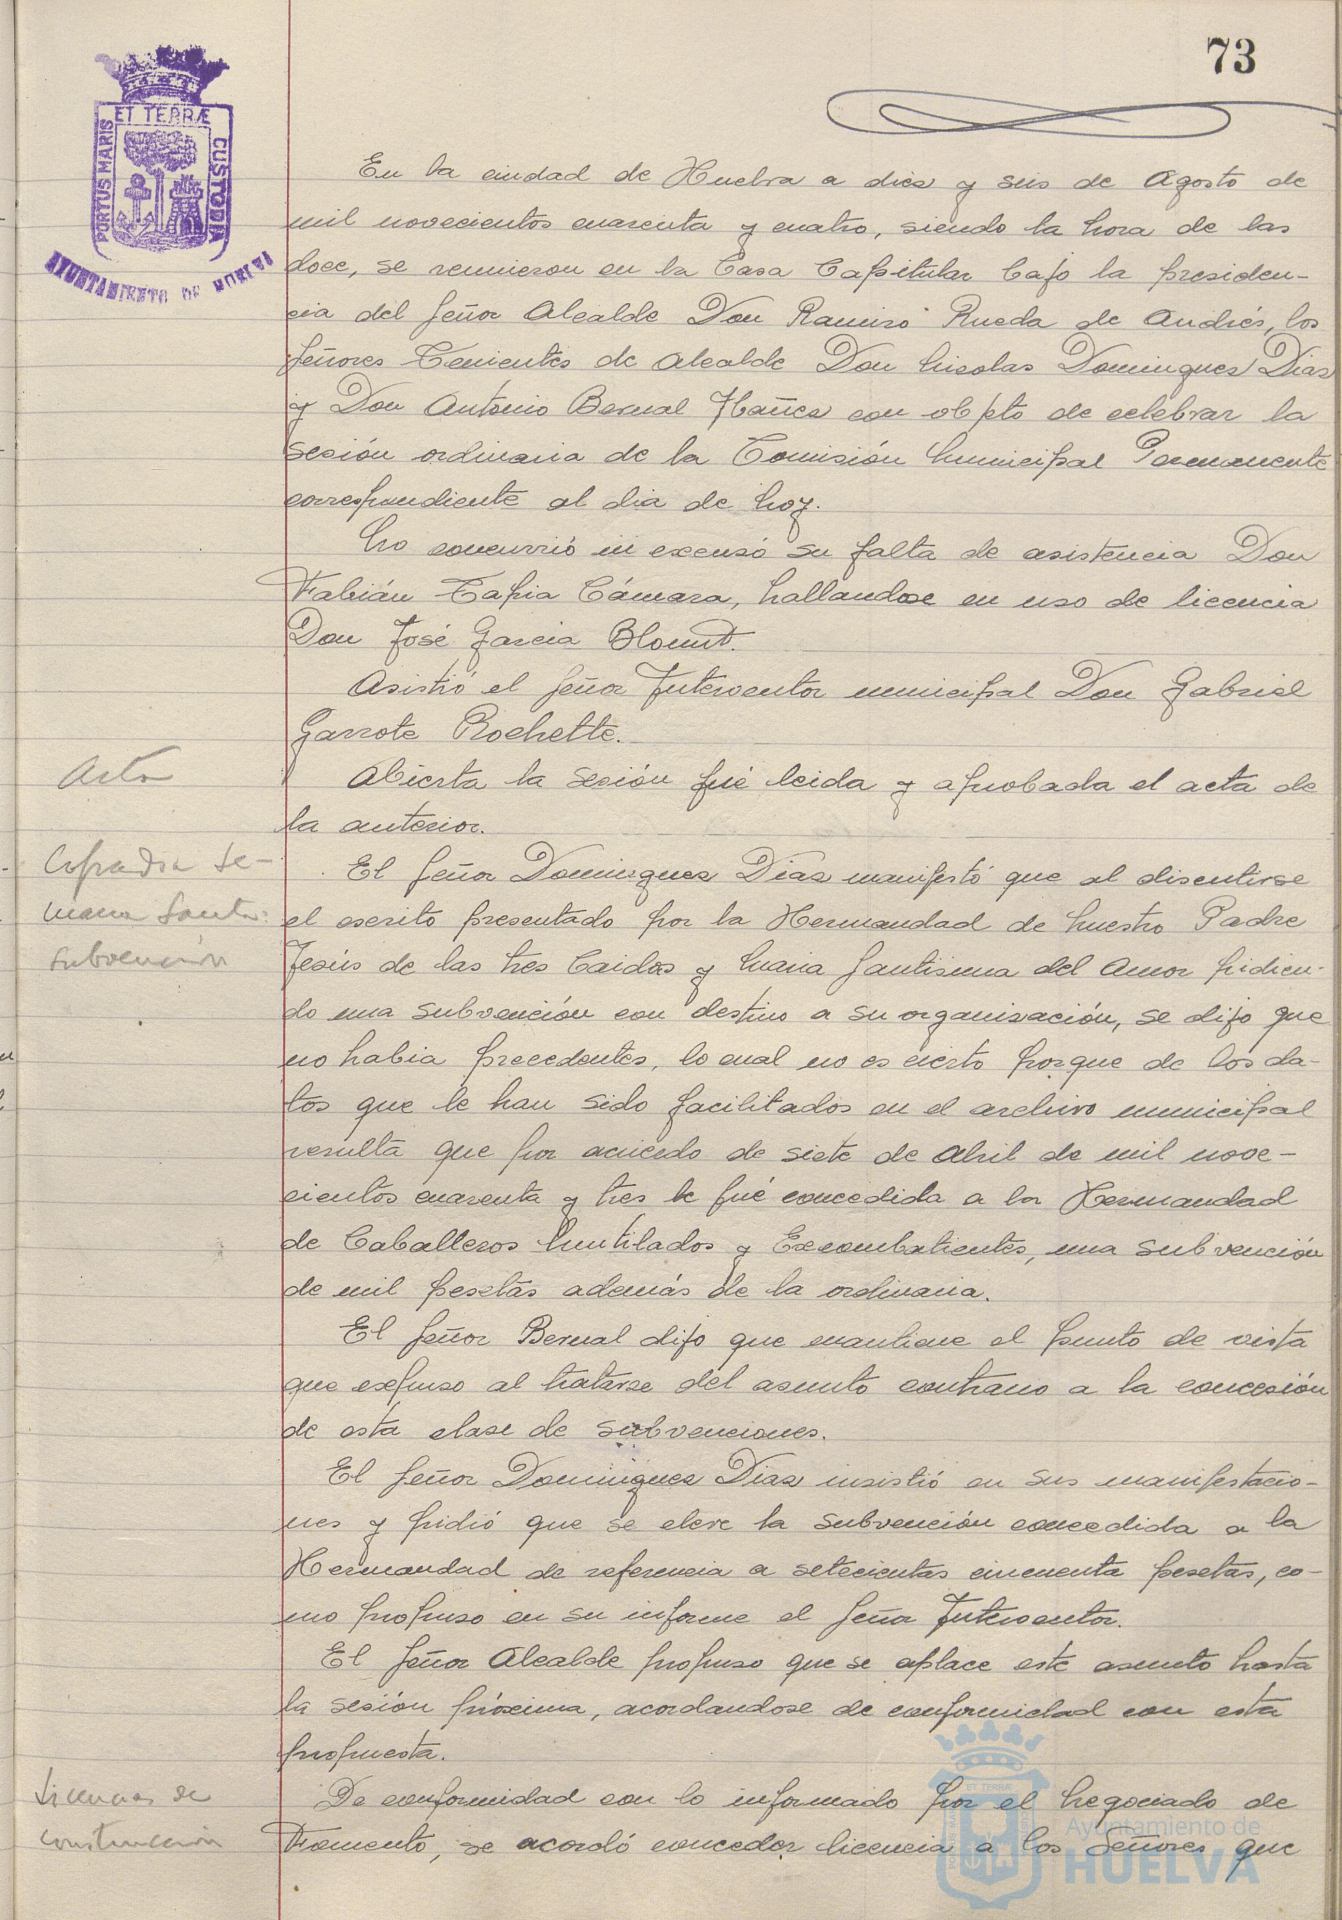 73
ET TERRÆ
PORTUS MARIS
CUSTODIA
AYUNTAMIENTO DE HUELVA
En la ciudad de Huelva a diez y seis de Agosto de
mil novecientos cuarenta y cuatro, siendo la hora de las
doce, se reunieron en la Casa Capitular bajo la presiden-
cia del Señor Alcalde Don Ramiro Rueda de Andrés, los
Señores Tenientes de Alcalde Don Nicolas Dominguez Diaz
y Don Antonio Bernal Ibañez con objeto de celebrar la
sesión ordinaria de la Comisión Municipal Permanente
correspondiente al dia de hoy.
No concurrió ni excusó su falta de asistencia Don
Fabián Tapia Cámara, hallandose en uso de licencia
Don José Garcia Blount.
Asistió el Señor Interventor municipal Don Gabriel
Garrote Rochette.
Acta
Abierta la sesión fué leida y aprobada el acta de
la anterior.
Cofradia Se-
mana Santa
subvención
El Señor Dominguez Diaz manifestó que al discutirse
el escrito presentado por la Hermandad de Nuestro Padre
Jesús de las tres Caidas y Maria Santisima del Amor pidien-
do una subvención con destino a su organización, se dijo que
no habia precedentes, lo cual no es cierto porque de los da-
tos que le han sido facilitados en el archivo municipal
resulta que por acuerdo de siete de Abril de mil nove-
cientos cuarenta y tres le fué concedida a la Hermandad
de Caballeros Mutilados y Excombatientes, una subvención
de mil pesetas además de la ordinaria.
El Señor Bernal dijo que mantiene el punto de vista
que expuso al tratarse del asunto contrario a la concesión
de esta clase de subvenciones.
El Señor Dominguez Diaz insistió en sus manifestacio-
nes y pidió que se eleve la subvención concedida a la
Hermandad de referencia a setecientas cincuenta pesetas, co-
mo propuso en su informe el Señor Interventor.
El Señor Alcalde propuso que se aplace este asunto hasta
la sesión próxima, acordandose de conformidad con esta
propuesta.
Licencias de
construcción
De conformidad con lo informado por el Negociado de
Fomento, se acordó conceder licencia a los Señores que
Ayuntamiento de
HUELVA